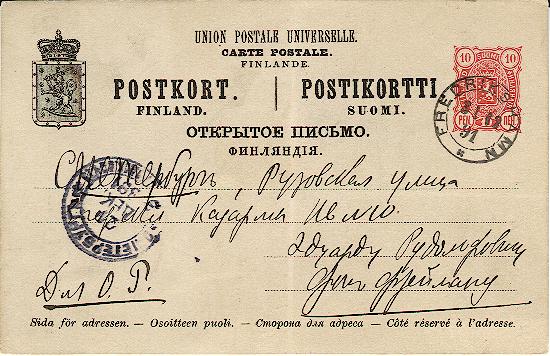 UNION POSTALE UNIVERSELLE.
CARTE POSTALE.
FINLANDE.
POSTKORT. POSTIKORTTI.
FINLAND. SUOMI.
ОТКРЫТОЕ ПИСЬМО.
ФИНЛЯНДІЯ.
10 10
PEN. ПЕН.
FREDRIKSHAMN
91
С Петербургъ, Рузовская улица
Казармы
Эдуарду Рудольфовичу
Для О. Р.
Sida för adressen. — Osoitteen puoli. — Сторона для адреса — Côté réservé à l'adresse.